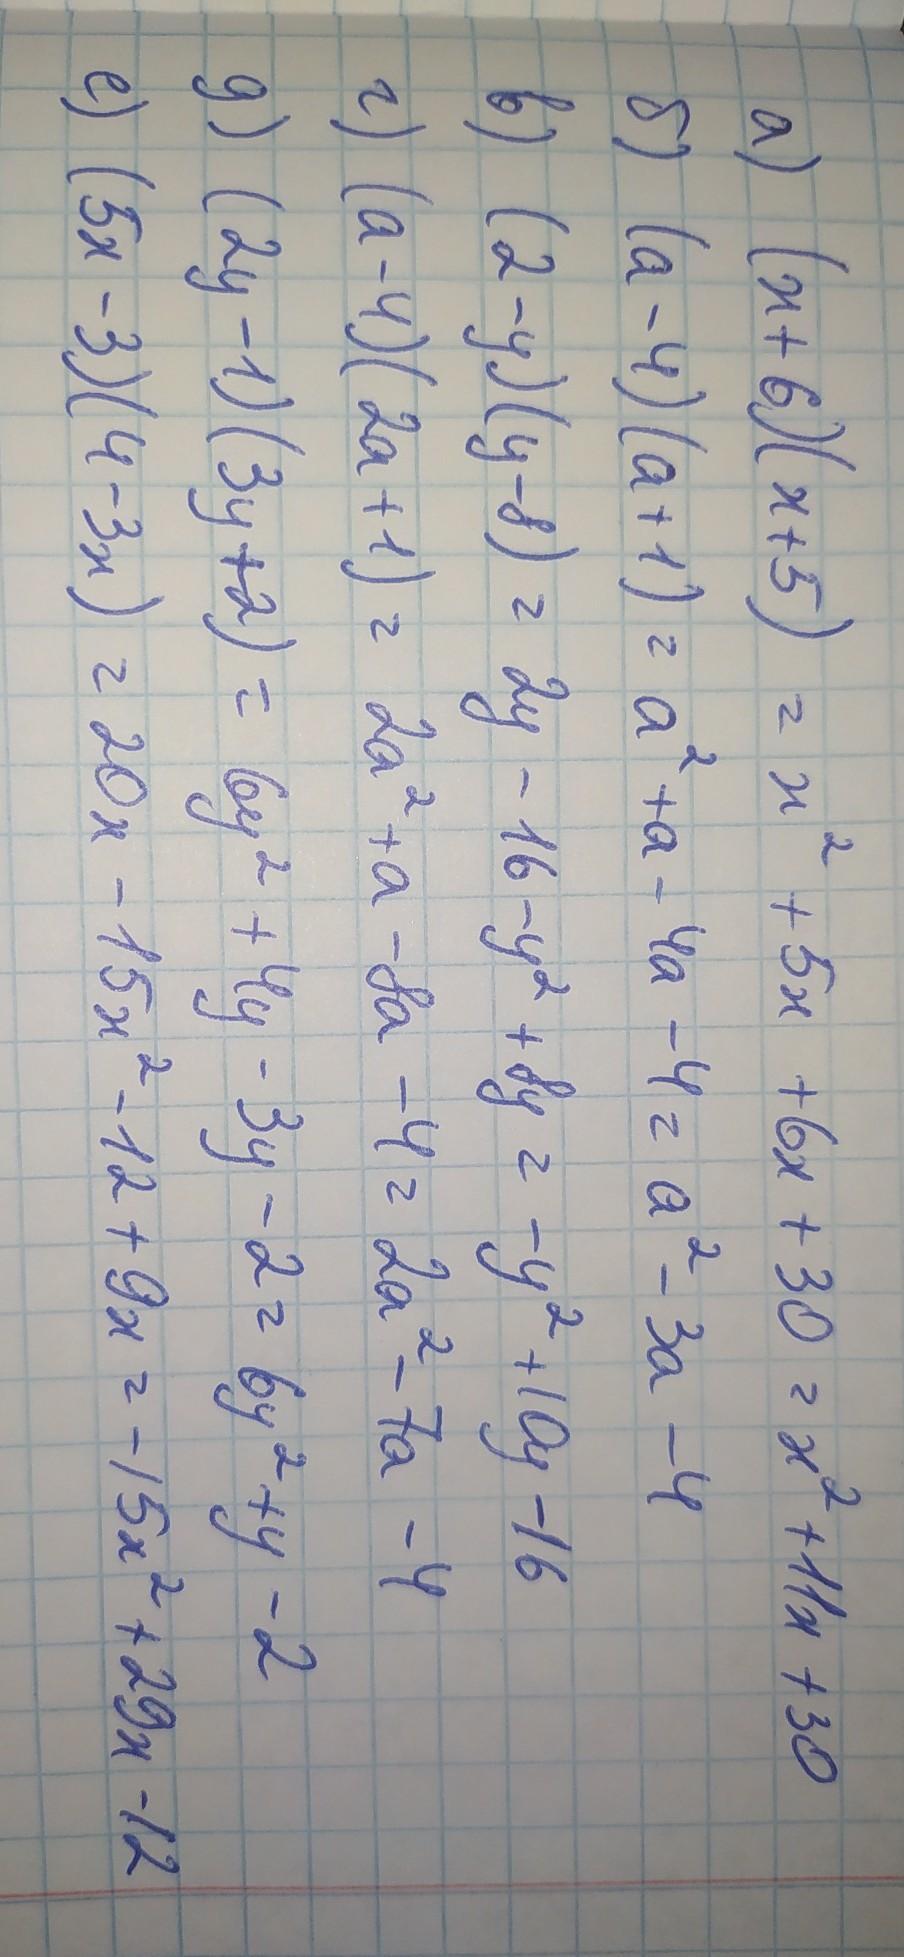 а) (x+6)(x+5) = x² + 5x + 6x + 30 = x² + 11x + 30
б) (a-4)(a+1) = a² + a - 4a - 4 = a² - 3a - 4
в) (2-y)(y-8) = 2y - 16 - y² + 8y = -y² + 10y - 16
г) (a-4)(2a+1) = 2a² + a - 8a - 4 = 2a² - 7a - 4
д) (2y-1)(3y+2) = 6y² + 4y - 3y - 2 = 6y² + y - 2
е) (5x-3)(4-3x) = 20x - 15x² - 12 + 9x = -15x² + 29x - 12